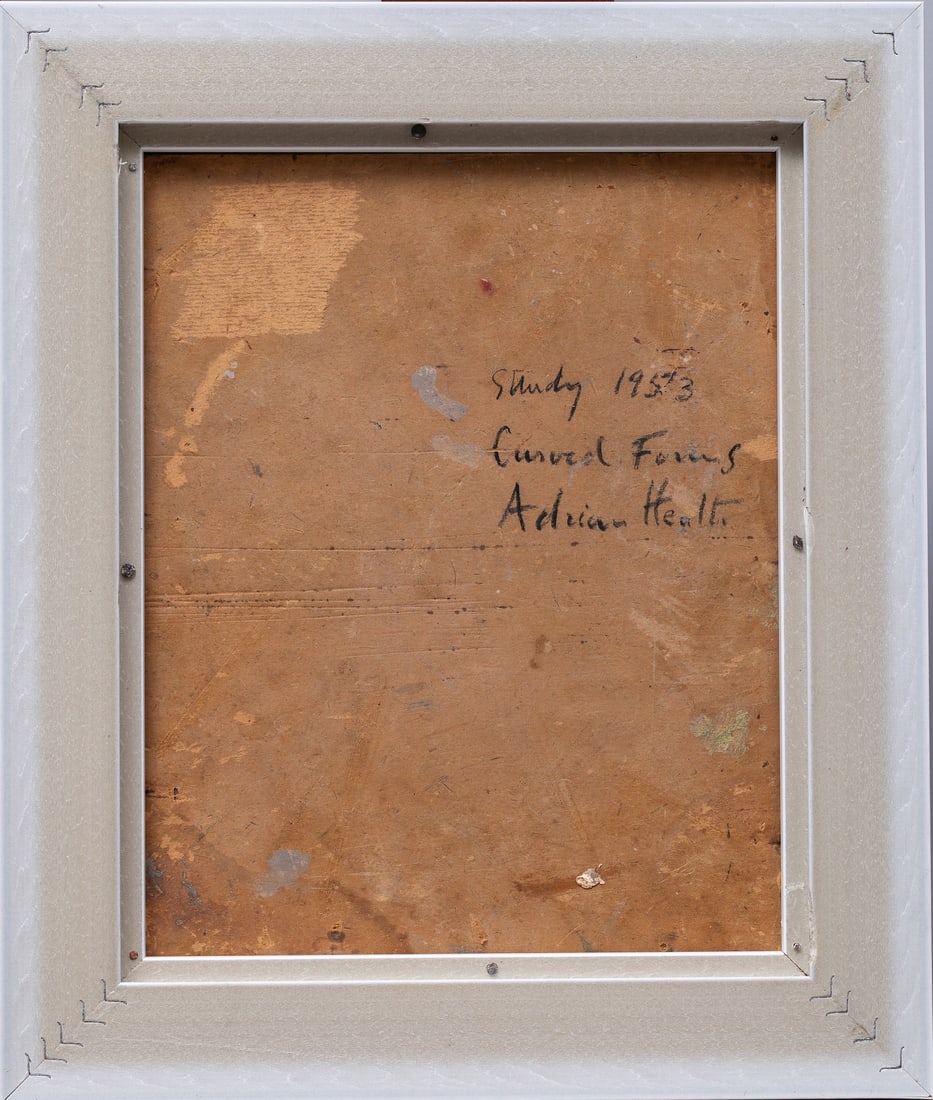 Study 1953
Curved Forms
Adrian Heath